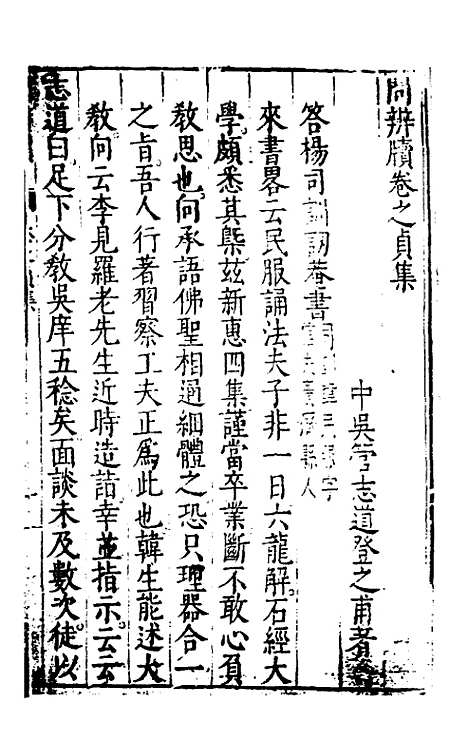 問辨牘卷之貞集
中吳管志道登之甫著
答楊司訓詞菴書
來書畧云民服誦法夫子非一日六龍解石經大
學頗悉其槩茲新惠四集謹當卒業斷不敢心負
教思也何承語佛聖相通細體之恐只理器合一
之旨吾人行著習察工夫正爲此也韓生能述大
教向云李見羅老先生近時造詣幸並指示云云
志道曰足下分教吳庠五稔矣面談未及數次徒以